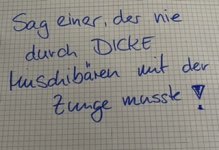 Sag einer, der nie
durch DICKE
Muschibären mit der
Zunge musste!